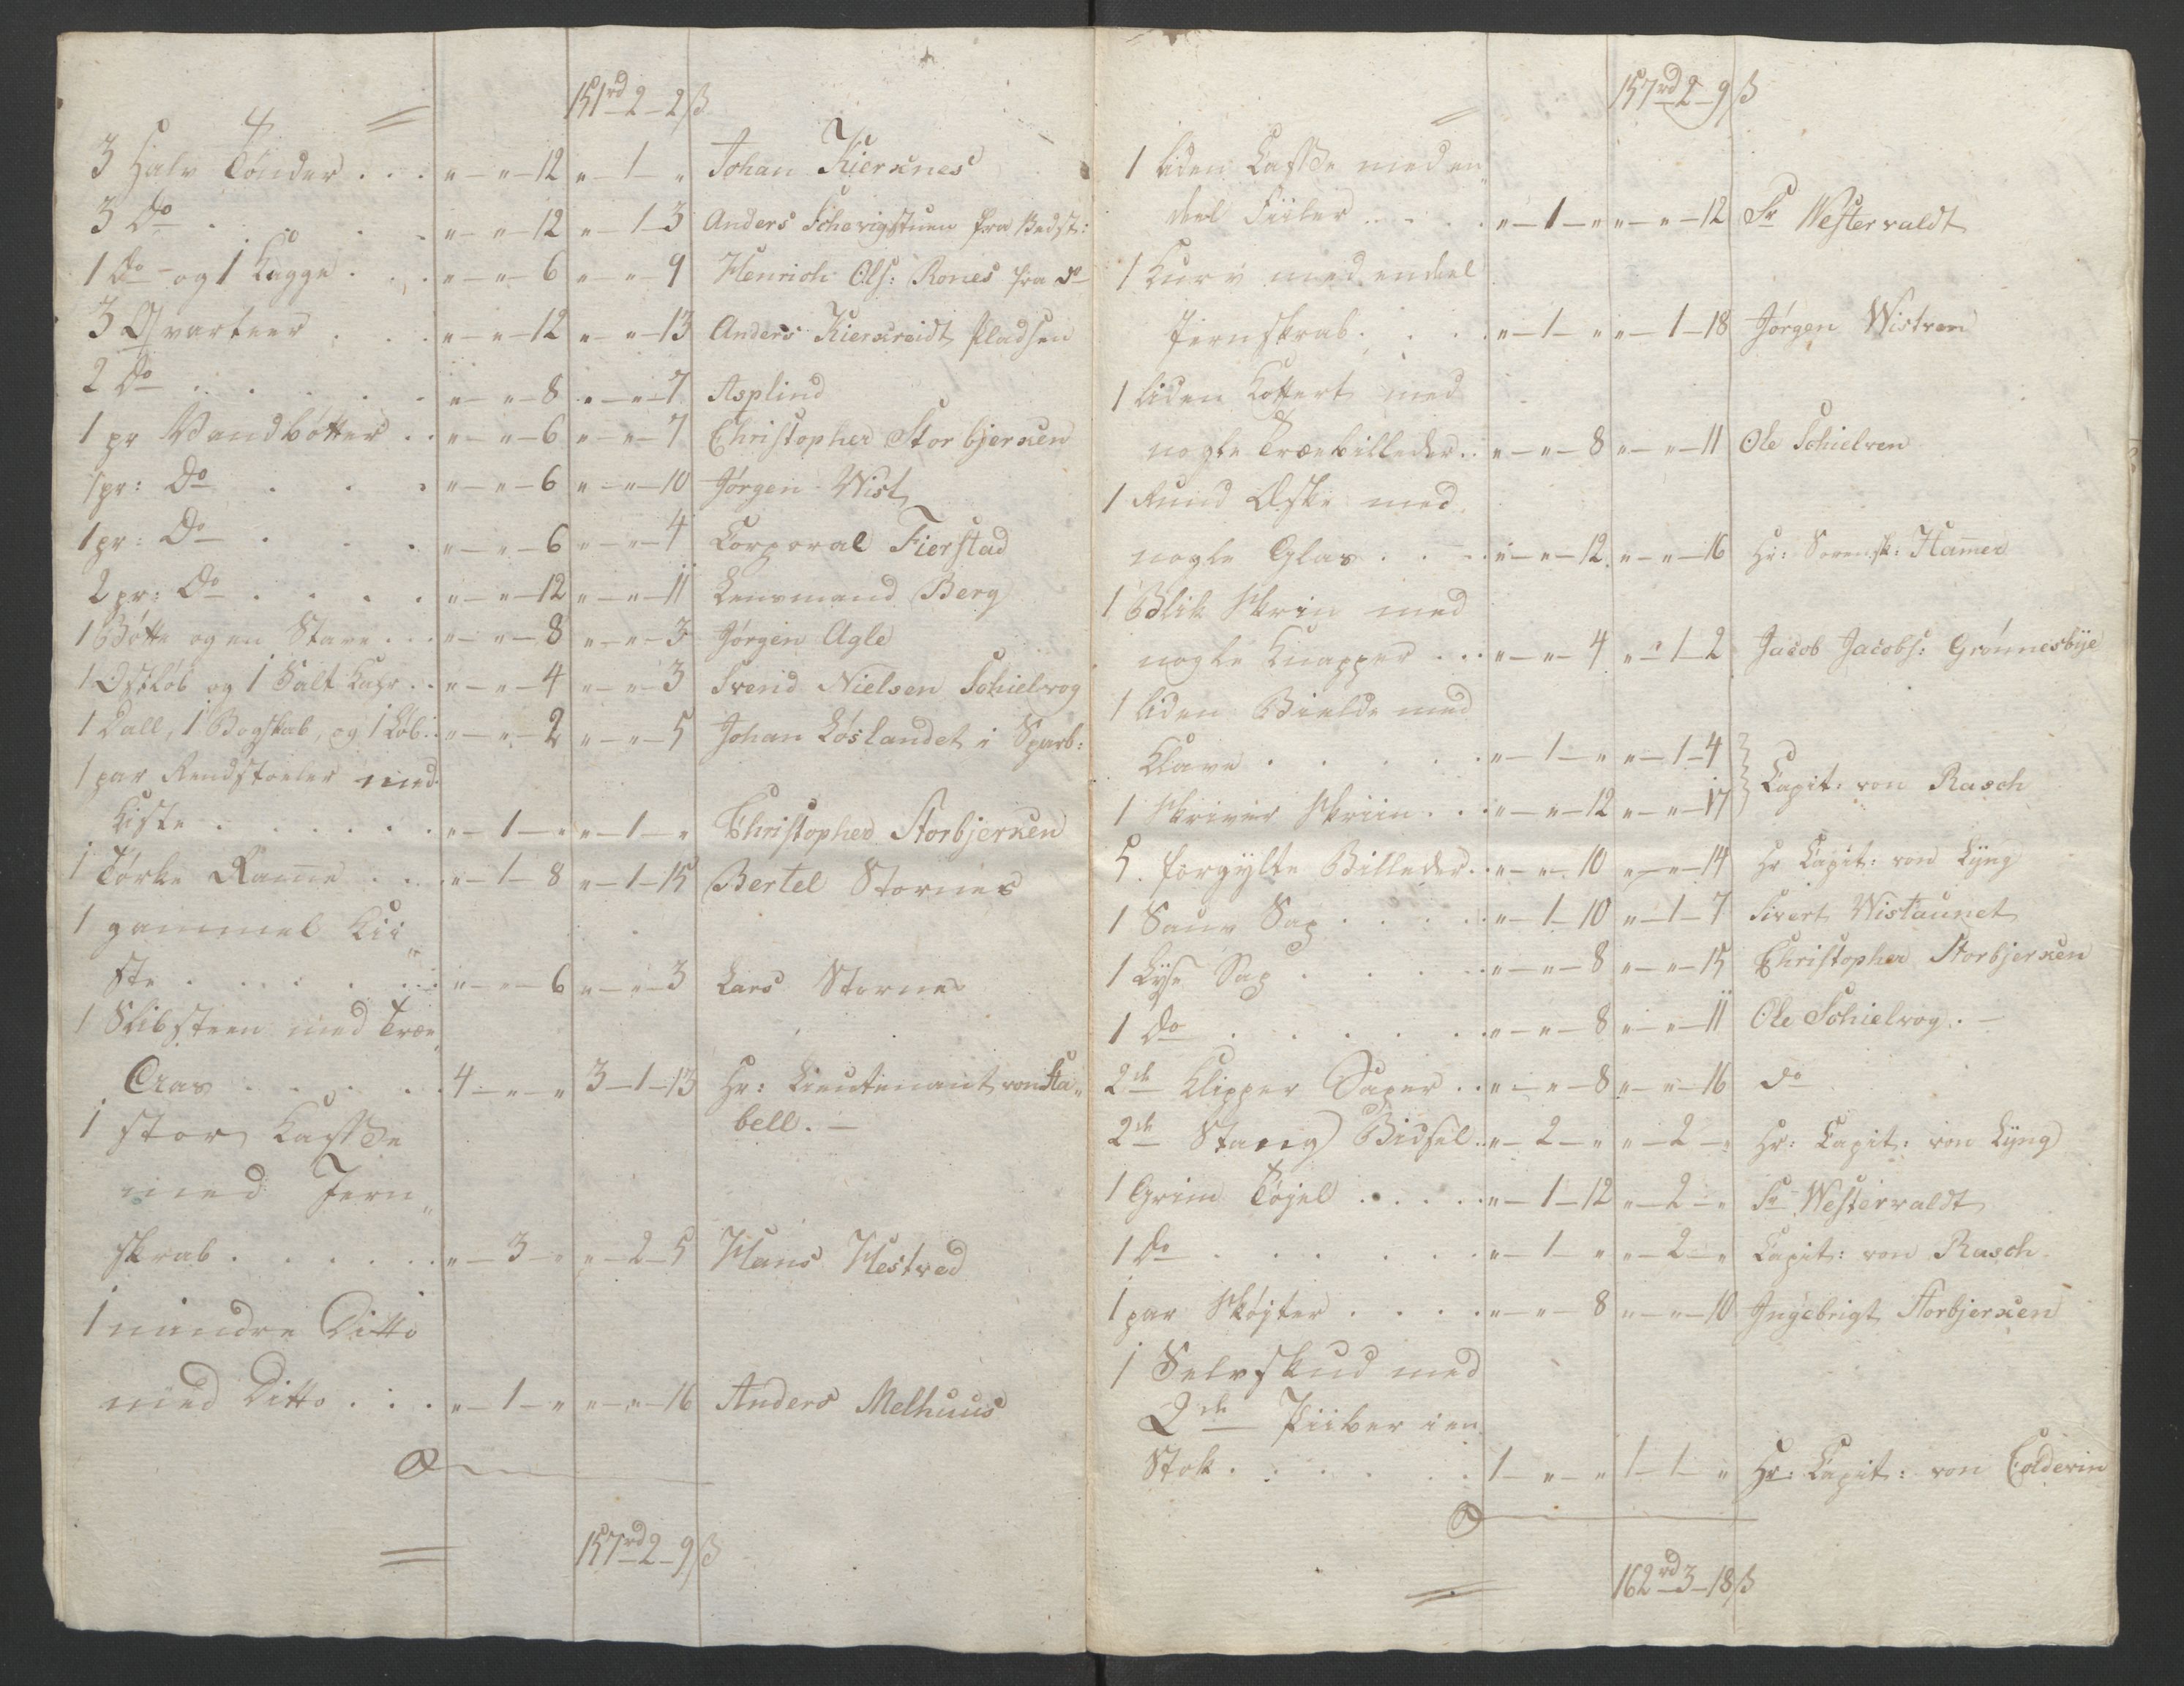 151rd 2 - 2 ß
3 Halv Tønder . . . " - " - 12 " - 1 - " Johan Kierxnes
3 Do . . . " - " - 12 " - 1 - 3 Anders Schevigstuen fra Bedst:
1 Do og 1 Kagge . . " - " - 6 " - " - 9 Henrich Ols: Rones fra do
3 Qvarteer . . . " - " - 12 " - " - 13 Anders Kierxreidt Pladsen
2 Do . . . . " - " - 8 " - " - 7 Asplind
1 pr Vandbøtter . . " - " - 6 " - " - 7 Christopher Storbjerxen
1 pr: Do . . . " - " - 6 " - " - 10 Jørgen Wist
1 pr: Do . . . " - " - 6 " - " - 4 Corporal Fierstad
2 pr: Do . . . . " - " - 12 " - " - 11 Lensmand Berg
1 Bøtte og en Stave . . . " - " - 8 " - " - 3 Jørgen Agle
1 Ostløb og 1 Salt Kar . . " - " - 4 " - " - 3 Svend Nielsen Schielvog
1 Dall, 1 Bogskab, og 1 Løb . . " - " - 2 " - " - 5 Johan Løslandet i Sparb:
1 par Rendstoeler med
Kiste . . . . . . " - 1 - " " - 1 - " Christopher Storbjerxen
1 Tørke Rame . . . " - 1 - 8 " - 1 - 15 Bertel Stornes
1 gammel Kii„
ste . . . . . . " - " - 6 " - " - 3 Lars Stornes
1 Slibsteen med Træe„
Aas . . . . . 4 - " - " 3 - 1 - 13 Hr: Lieutenant von Sta„
bell. -
1 stor Kasse
med Jern„
skrab . . . . . . " - 3 - " " - 2 - 5 Hans Hestved
1 mindre Ditto
med Ditto . . . " - 1 - " " - " - 16 Anders Melhuus
157rd 2 - 9 ß
157rd 2 - 9 ß
1 liden Kasse med en„
deel Fiiler . . . . " - 1 - " " - " - 12 Sr Westervaldt
1 Kurv med endeel
Jernskrab . . . . " - 1 - " " - 1 - 18 Jørgen Wistven
1 liden Koffert med
nogle Træebilleder . . " - " - 8 " - " - 11 Ole Schielven
1 Rund Æske med
nogle Glas . . . . " - " - 12 " - " - 16 Hr: Sorensk: Hamer
1 Blik Skrin med
nogle Knapper . . . " - " - 4 " - 1 - 2 Jacob Jacobs: Grønnesbye
1 liden Bielde med
Klave . . . . . . " - 1 - " " - 1 - 4
1 Skriver Skriin . . . " - " - 12 " - " - 17 Capit: von Rasch
5 forgylte Billeder . . " - " - 10 " - " - 14 Hr Capit: von Lyng
1 Sauv Sax . . . . " - 1 - 10 " - 1 - 7 Sivert Wistaunet
1 Lyse Sax . . . . . " - " - 8 " - " - 15 Christopher Storbjerxen
1 Do . . . . . . " - " - 8 " - " - 11 Ole Schielvog. -
2de Klipper Saxer . . " - " - 8 " - " - 16 do
2de Stang Bidsel . . " - 2 - " " - 2 - " Hr: Capit: von Lyng
1 Grim Tøjel . . . . . " - 1 - 12 " - 2 - " Sr Westervaldt
1 Do . . . . . . " - 1 - " " - 2 - " Capit: von Rasch
1 par Skøjter . . . . " - " - 8 " - " - 10 Ingebrigt Storbjerxen
1 Selvskud med
2de Piiber i en
Stok . . . . . . 1 - " - " 1 - 1 - " Hr: Capit: von Colderin
162rd 3 - 18 ß